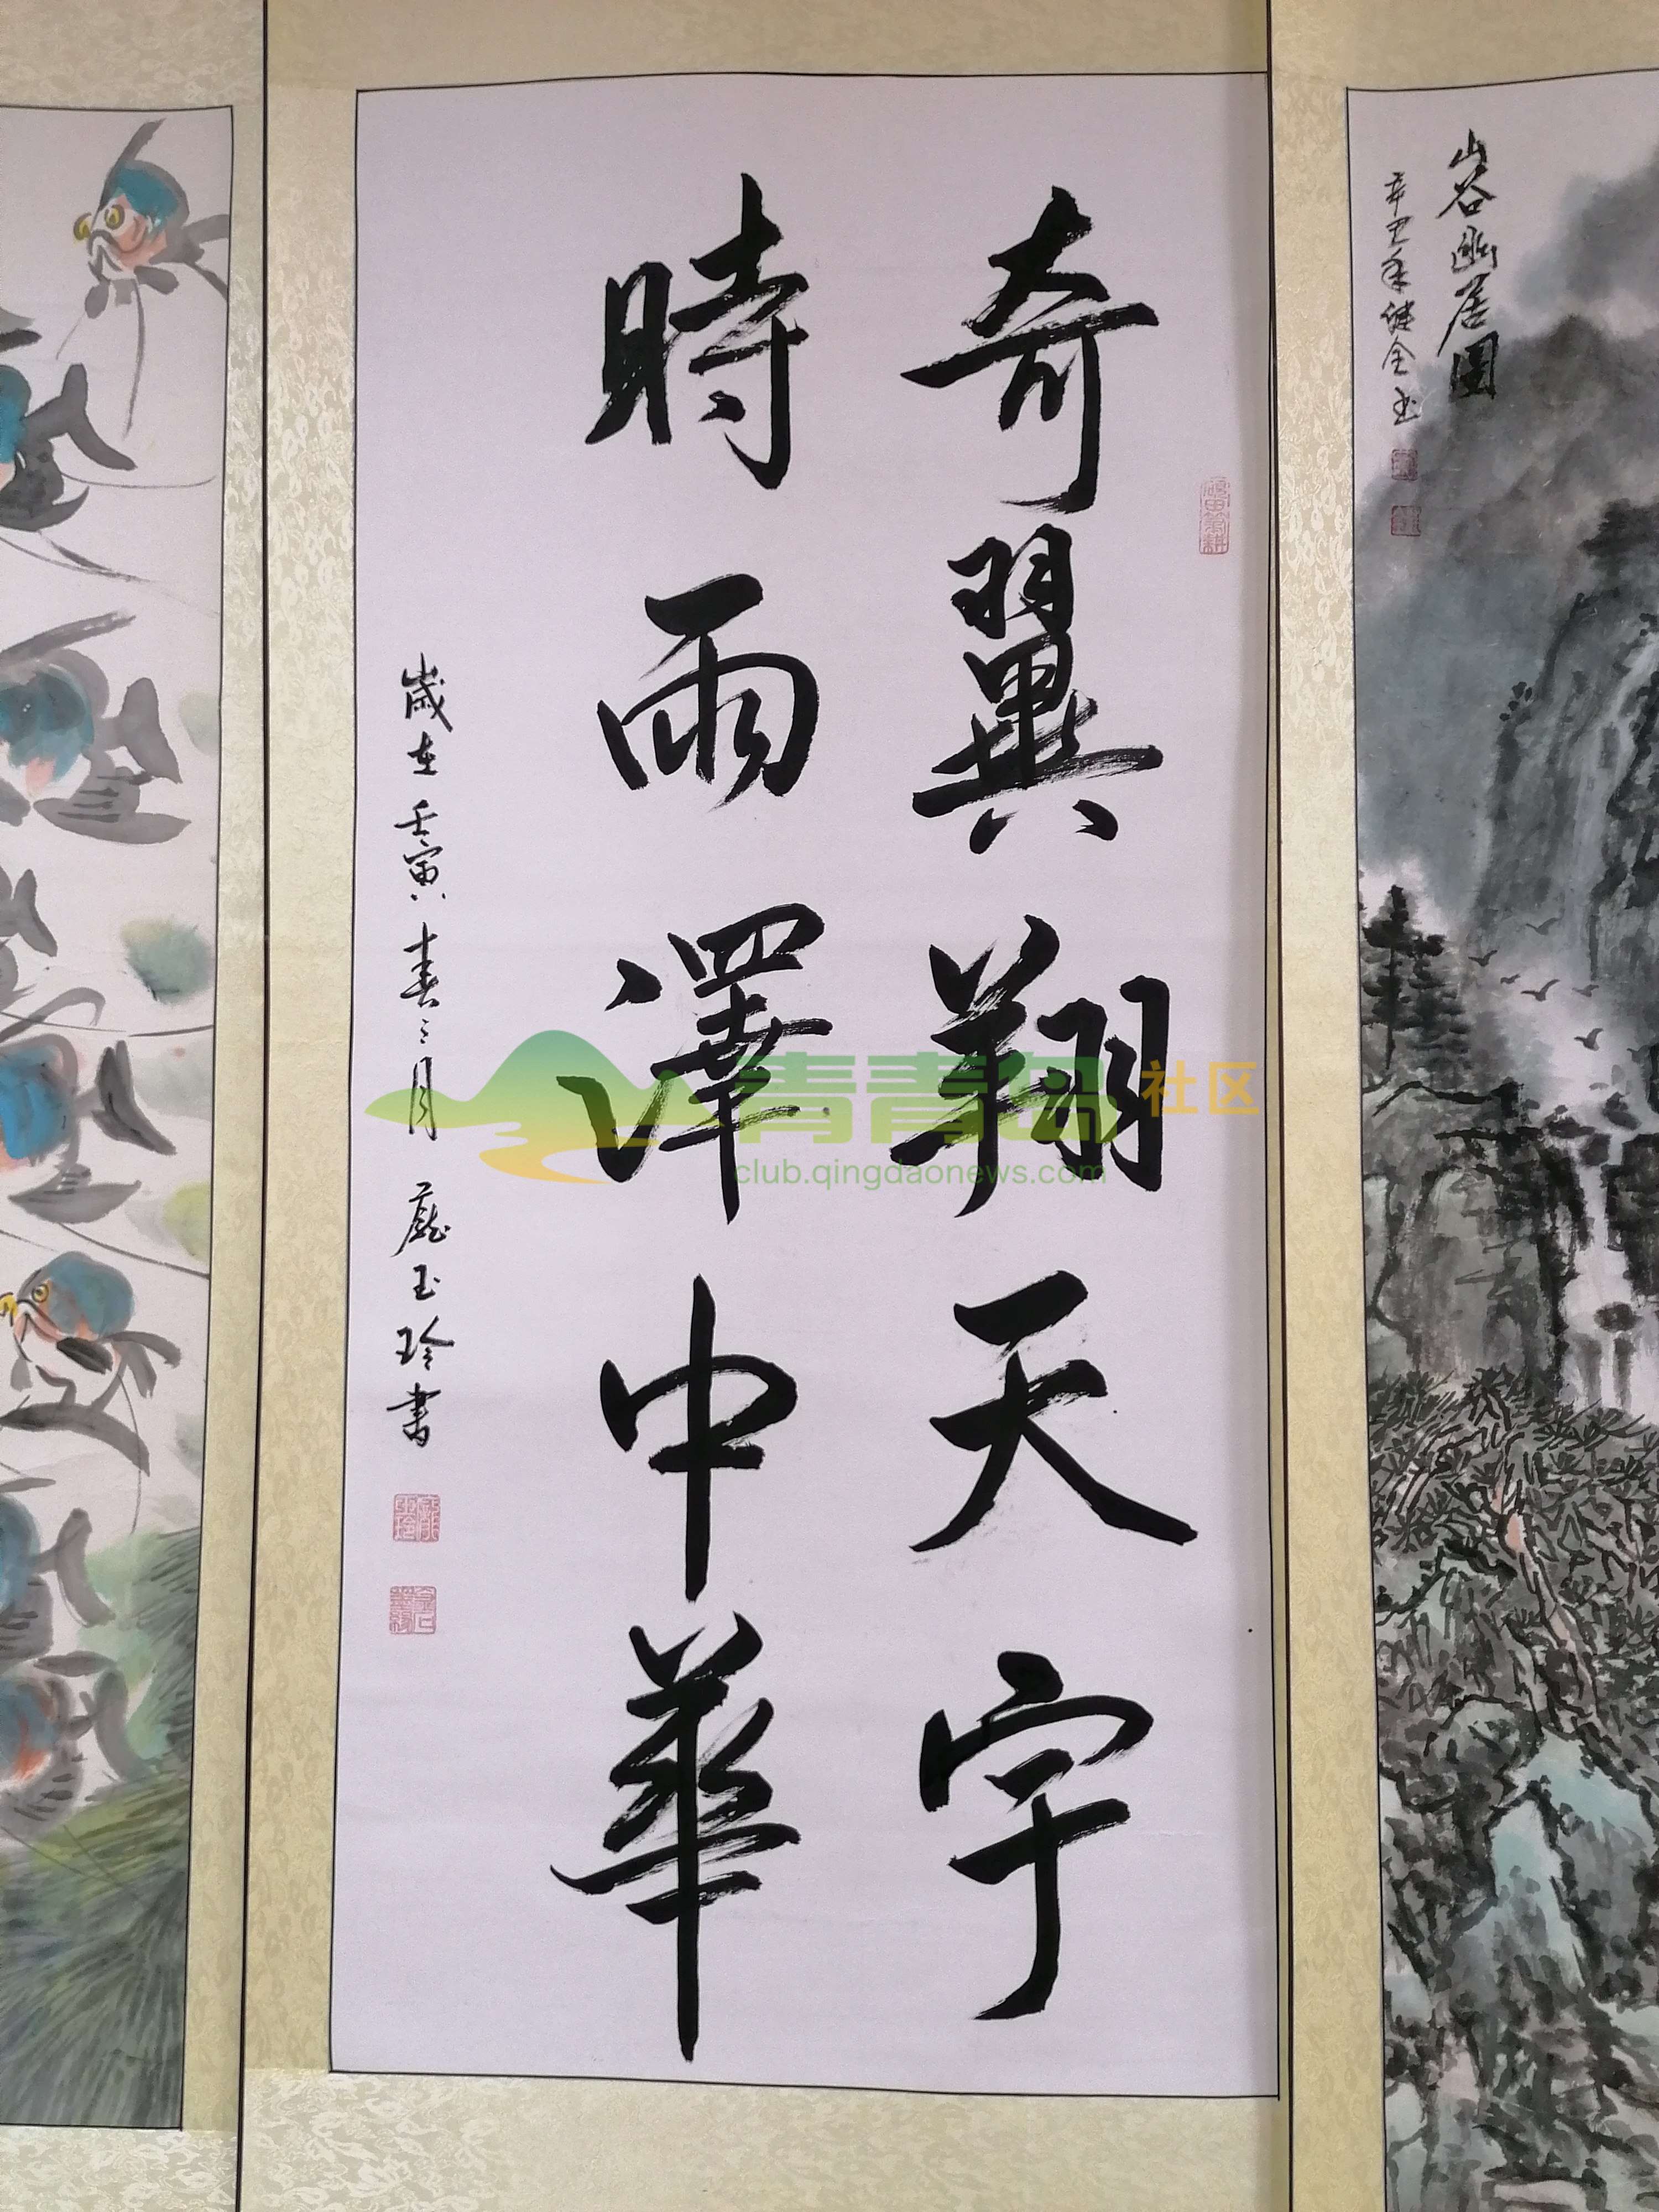 奇翼翔天宇
時雨澤中華
歲在壬寅春三月 龐玉玲書
山谷幽居圖
辛丑年健全书
硯田筆耕
青青岛社区
club.qingdaonews.com